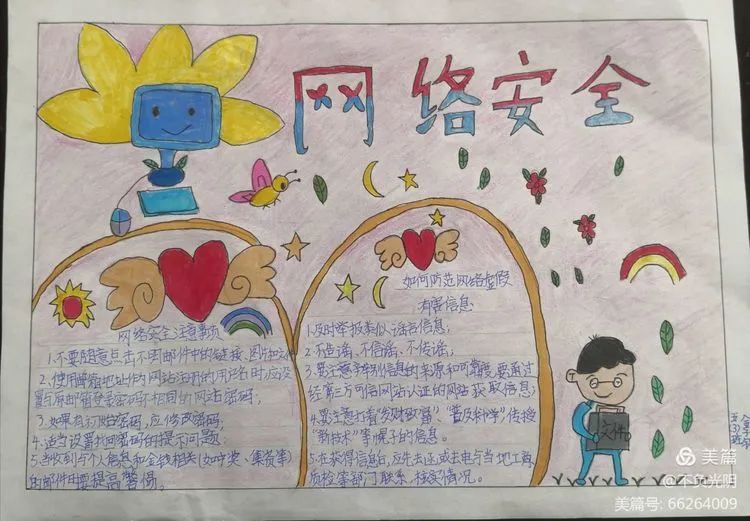 网络安全
网络安全注意事项
1.不要随意点击不明邮件中的链接、图片、文件
2.使用邮箱地址作为网站注册的用户名时,应设
置与原邮箱登录密码不相同的网站密码;
3.如果有初始密码,应修改密码;
4.适当设置找回密码的提示问题;
5.当收到与个人信息和金钱相关(如中奖、集资等)
的邮件时要提高警惕。
如何防范网络虚假
有害信息:
1.及时举报类似谣言信息;
2.不造谣、不信谣、不传谣;
3.要注意辨别信息的来源和可靠度,要通过
经第三方可信网站认证的网站获取信息;
4.要注意打着“发财致富”“普及科学”传授
“新技术”等幌子的信息。
5.在获得信息后,应先去函或去电与当地工商、
质检等部门联系,核实情况。
文件
美篇
@不负光阴
美篇号:66264009